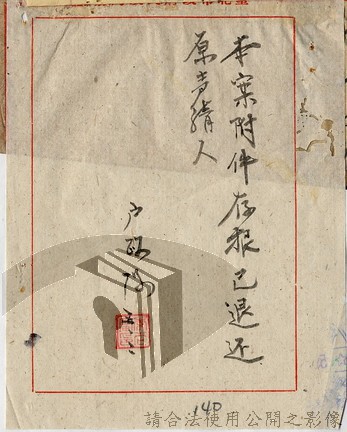 本案附件存根已退还
原声請人
户政
140
請合法使用公開之影像